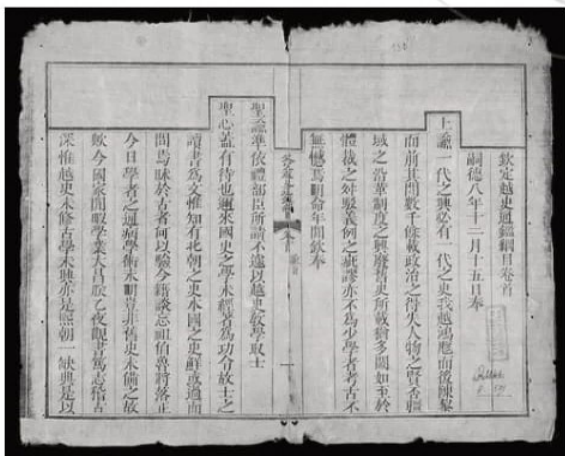 欽定越史通鑑綱目卷首
嗣德八年十二月十五日奉
上諭一代之興必有一代之史我越鴻厖而後陳黎
而前其間數千餘載政治之得失人物之賢否疆
域之沿革制度之興廢舊史所載猶多闕如至於
體裁之舛駁義例之訛謬亦不為少學者考古不
無憾焉明命年間欽奉
聖諭準依禮部臣所請不遽以越史敎學取士
聖心蓋有待也邇來國史之學未經著為功令故士之
讀書為文惟知有北朝之史本國之史鮮或過而
問焉昧於古者何以驗今籍談忘祖伯魯將落正
今日學者之通病學術未明豈非舊史未備之故
歟今國家閒暇學業大昌朕乙夜觀書篤志稽古
深惟越史未修古學未興亦是熙朝一缺典是以